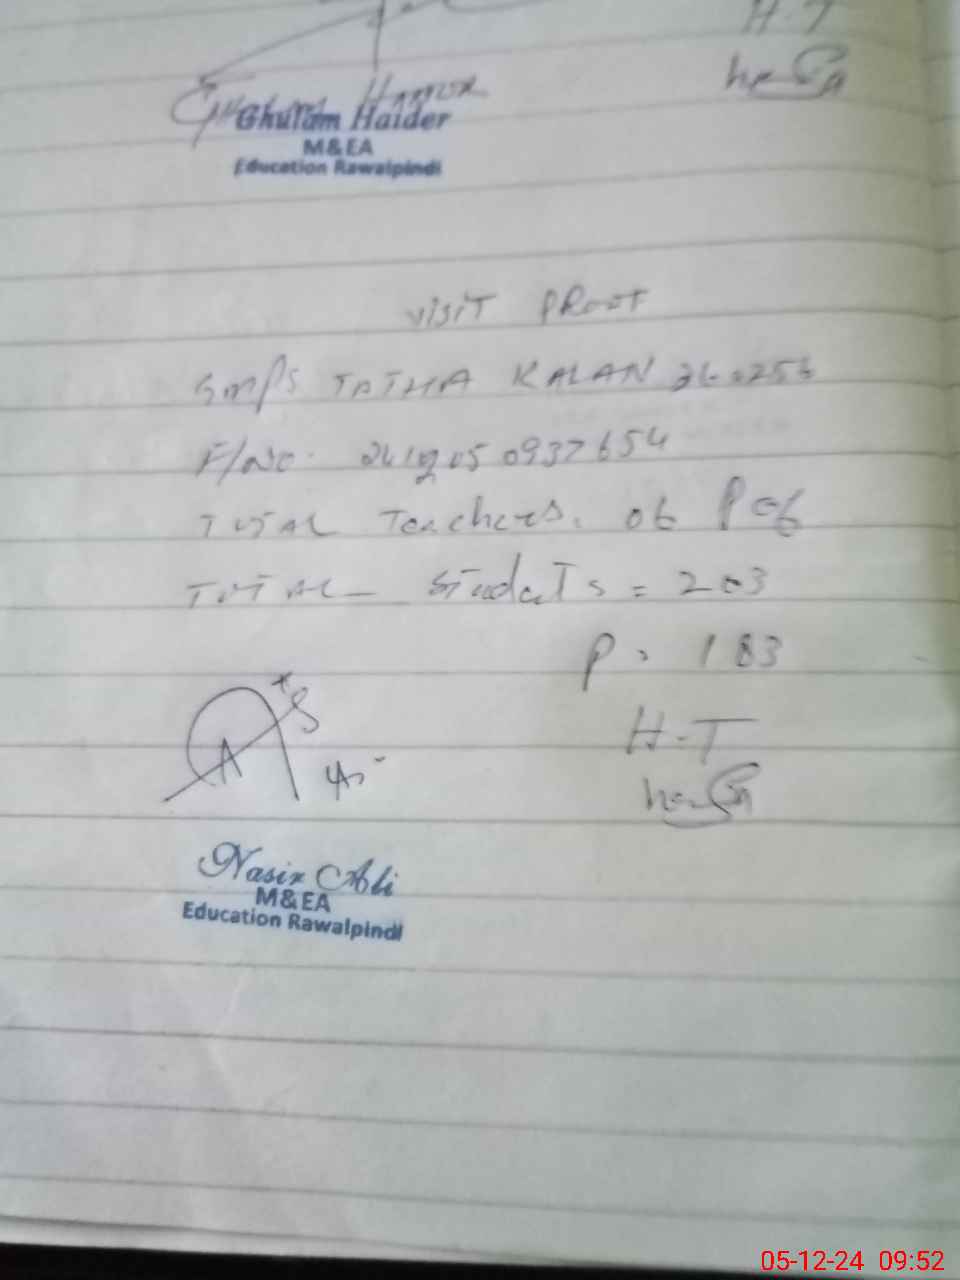 H.T
Ghulam Haider
M&EA
Education Rawalpindi
VISIT PROOF
GMPS TATHA KALAN
F/NO. 241205 0937654
TOTAL Teachers. 06 P 06
TOTAL Students = 203
P = 183
H-T
Nasir Ali
M&EA
Education Rawalpindi
05-12-24 09:52